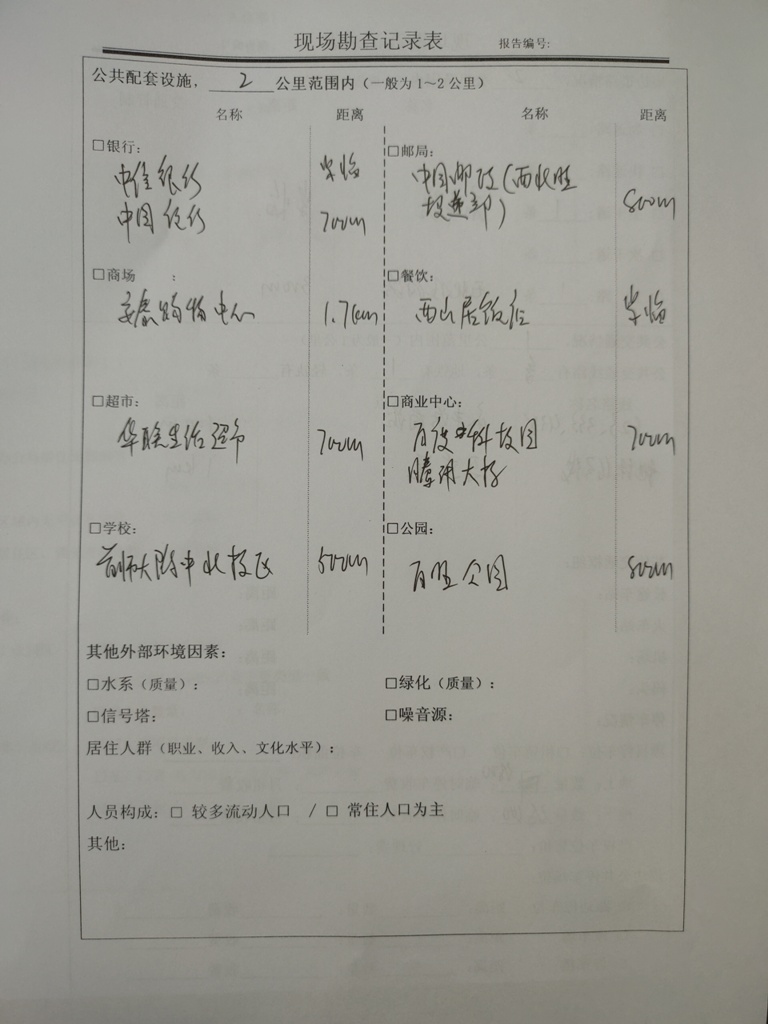 现场勘查记录表 报告编号:
公共配套设施, 2 公里范围内（一般为1～2公里）
名称 距离 名称 距离
□银行: □邮局:
中信银行 毕临 中国邮政(西北旺
中国银行 700m 投递部) 800m
□商场 : □餐饮:
购物中心 1.7km 西山居饭店 毕临
□超市: □商业中心:
华联生活超市 700m 百度科技园 700m
腾讯大厦
□学校: □公园:
首师大附中北校区 500m 百旺公园 800m
其他外部环境因素:
□水系（质量）: □绿化（质量）:
□信号塔: □噪音源:
居住人群（职业、收入、文化水平）:
人员构成: □ 较多流动人口 / □ 常住人口为主
其他: